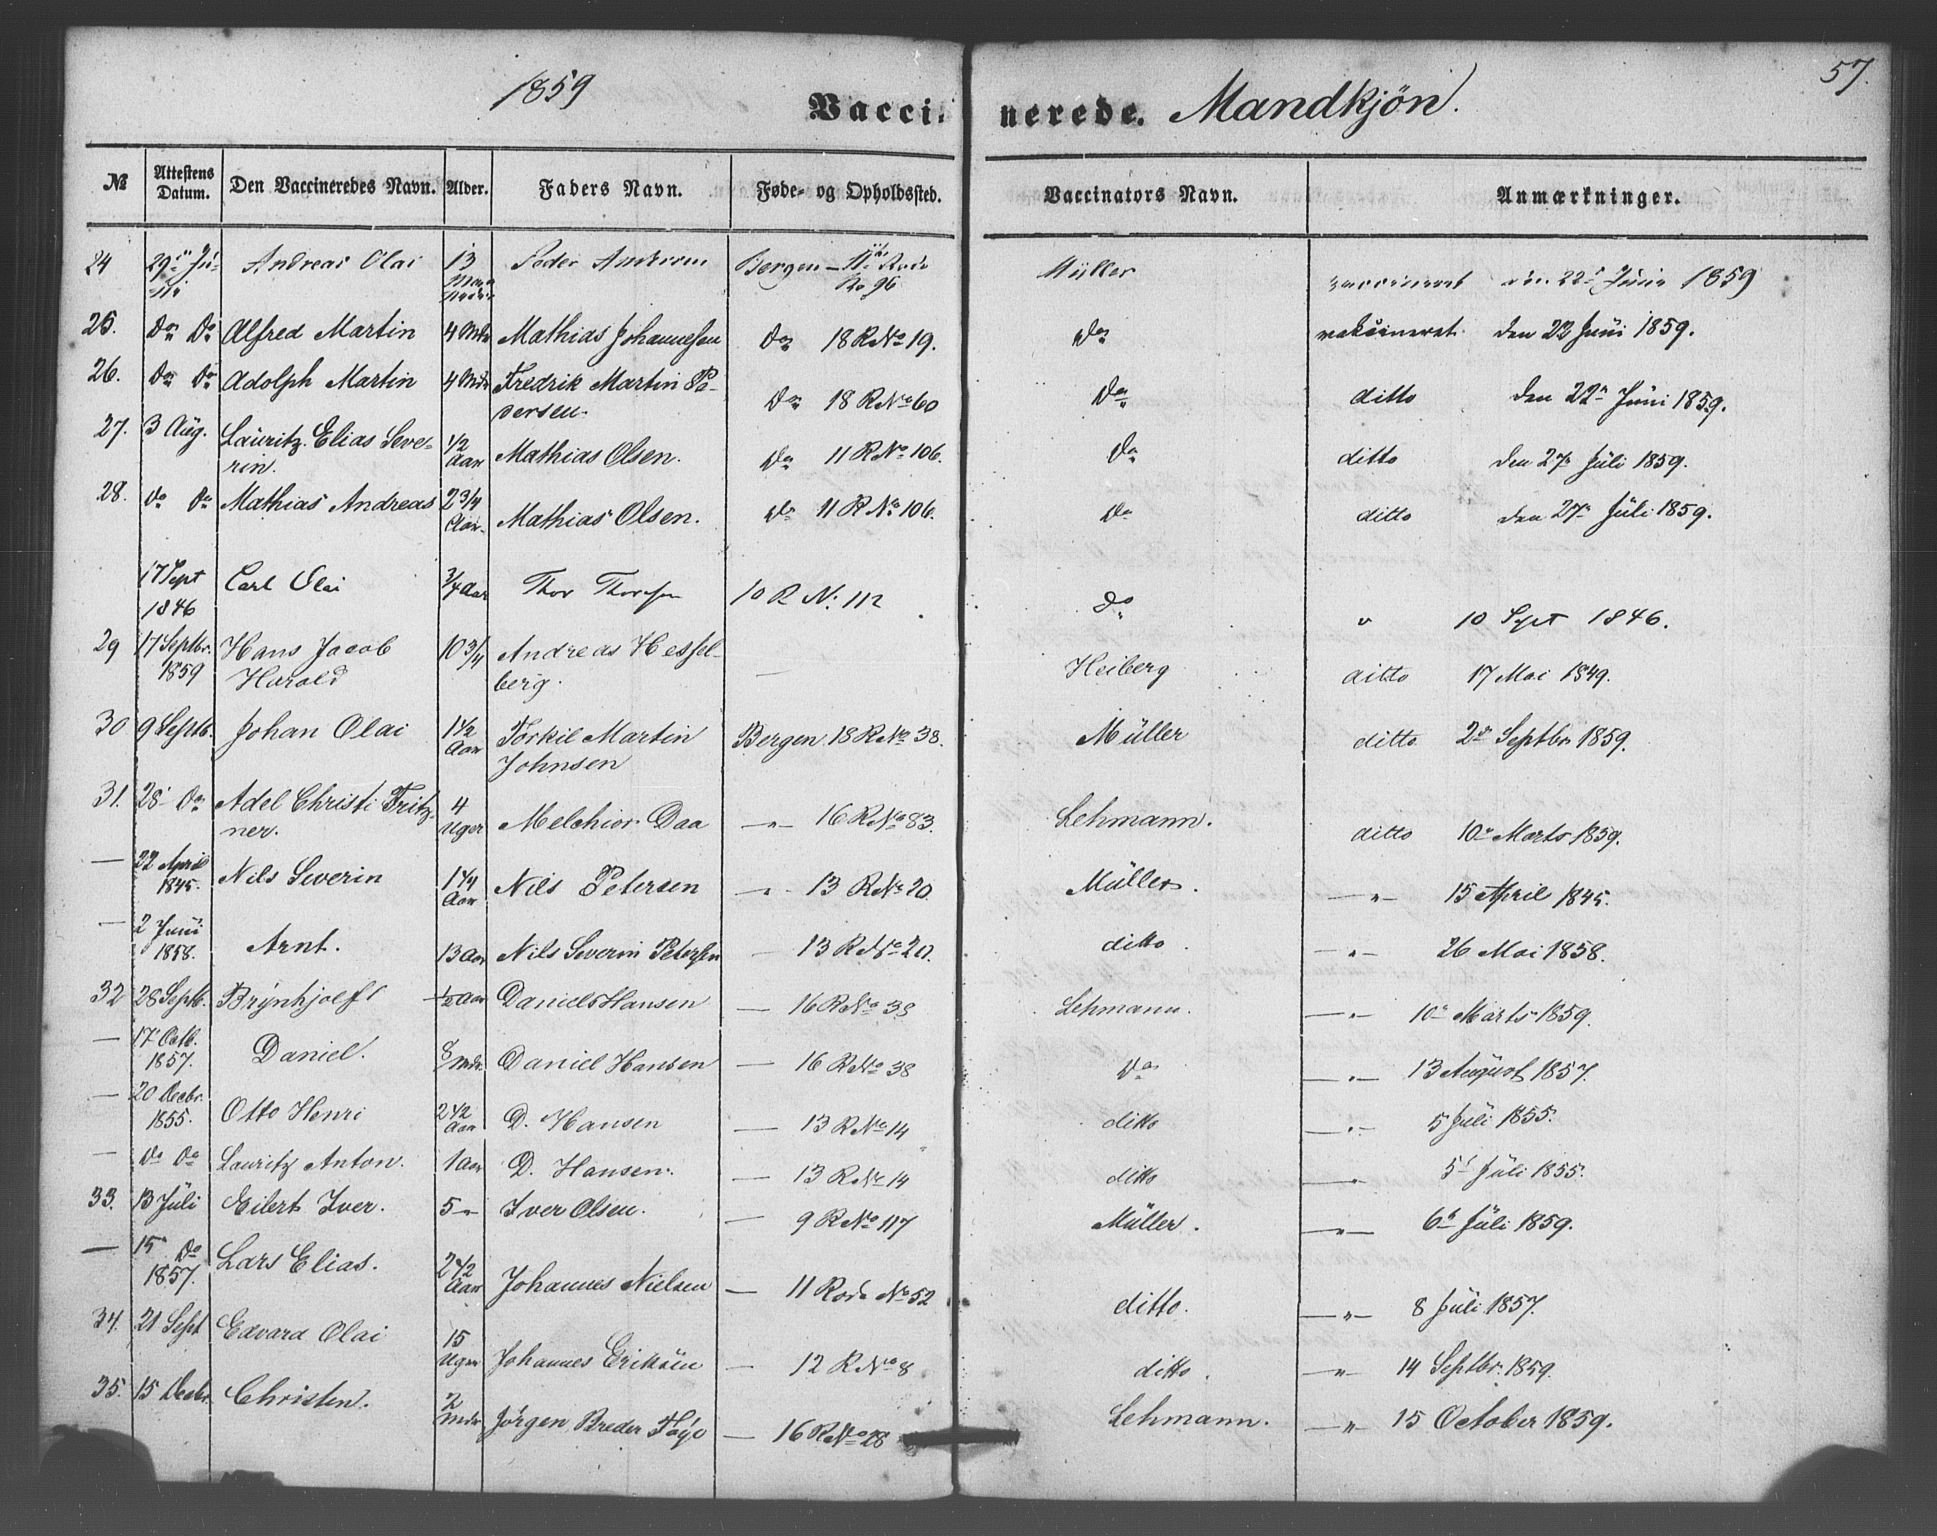 1859 Vaccinerede. Mandkjön. 57.
№ Attestens Datum. Den Vaccineredes Navn. Alder. Faders Navn. Føde- og Opholdssted. Vaccinators Navn. Anmærkninger.
24 29 Juni Andreas Olai 13 Maaneder Peder Bergen 11te Rode No 96 Müller vaccineret den 22 Juni 1859
25. Do Do Alfred Martin 4 Mdr Mathias Johannesen Do 18 R No 19. Do vakcineret den 22 Juni 1859.
26. Do Do Adolph Martin 4 Mdr Fredrik Martin Pe-
dersen. Do 18 R No 60 Do ditto den 22 Juni 1859.
27. 3 Aug. Lauritz Elias Seve-
rin. 1/2 Aar Mathias Olsen. Do 11 R No 106. Do ditto den 27 Juli 1859.
28. Do Do Mathias Andreas 2 3/4 Aar. Mathias Olsen. Do 11 R No 106. Do ditto den 27 Juli 1859.
17 Sept 1846 Carl Olai 3/4 Aar Thor Thorsen 10 R N. 112 Do " 10 Sept 1846.
29 17 Septbr. 1859 Hans Jacob
Harald 10 3/4 Andreas Hessel-
berg. — Heiberg ditto 17 Mai 1849.
30 9 Septb. Johan Olai 1 1/2 Aar Torkil Martin
Johnsen Bergen 18 R No 38. Müller ditto 2 Septbr 1859.
31. 28 Do Adel Christi Fritz-
ner. 4 Uger Melchior Daa —"— 16 R No 83. Lehmann. ditto 10 Marts 1859.
— 22 April 1845. Nils Severin 1 1/4 Aar Nils Petersen —"— 13 R No 20. Müller. —"— 15 April 1845.
— 2 Juni 1858. Arnt. 13 Aar Nils Severin Petersen — 13 R No 20. ditto —"— 26 Mai 1858.
32 28 Septb. Brynhjolf 1/2 Aar Daniels Hansen — 16 R No 38 Lehmann. —"— 10 Marts 1859.
— 17 Octb. 1857. Daniel. 8 Mdr. Daniel Hansen — 16 R No 38 Do —"— 13 August 1857.
— 20 Decbr. 1855. Otto Henri 2 1/2 Aar D. Hansen — 13 R No 14 ditto —"— 5 Juli 1855.
— Do Do Lauritz Anton. 1 Aar D. Hansen. — 13 R No 14 ditto —"— 5 Juli 1855.
33. 13 Juli Eilert Iver. 5 " Iver Olsen. — 9 R No 117 Müller. —"— 6 Juli 1859.
— 15 Do 1857. Lars Elias. 2 1/2 Aar Johannes Nielsen — 11 Rode No 52 ditto. —"— 8 Juli 1857.
34. 21 Sept Edvard Olai 15 Uger Johannes Eriksen — 12 R No 8 ditto. —"— 14 Septbr. 1859.
35. 15 Decbr. Christen. 2 Mdr Jörgen Breder — 16 R No 28 Lehmann. —"— 15 October 1859.